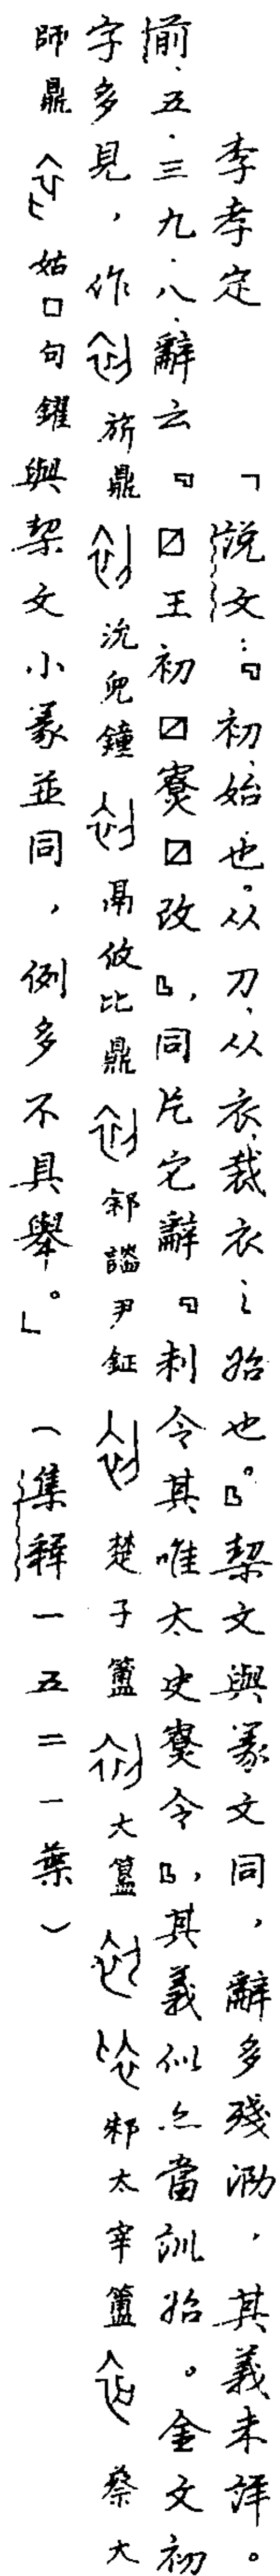 李孝定　「說文：『初，始也。从刀，从衣，裁衣之始也。』栔文與篆文同，辭多殘泐，其義未詳。
前．五．三九．八．辭云『☑王初☑寮☑改』，同片它辭『刺令其唯太史寮令』，其義似亦當訓始。金文初
字多見，作 旂鼎 沇兒鐘 鬲攸比鼎 䣄䚄尹鉦 楚子簠 大簋 邾太宰簠 蔡大
師鼎 姑□句鑃與栔文小篆並同，例多不具舉。」（集釋一五二一葉）